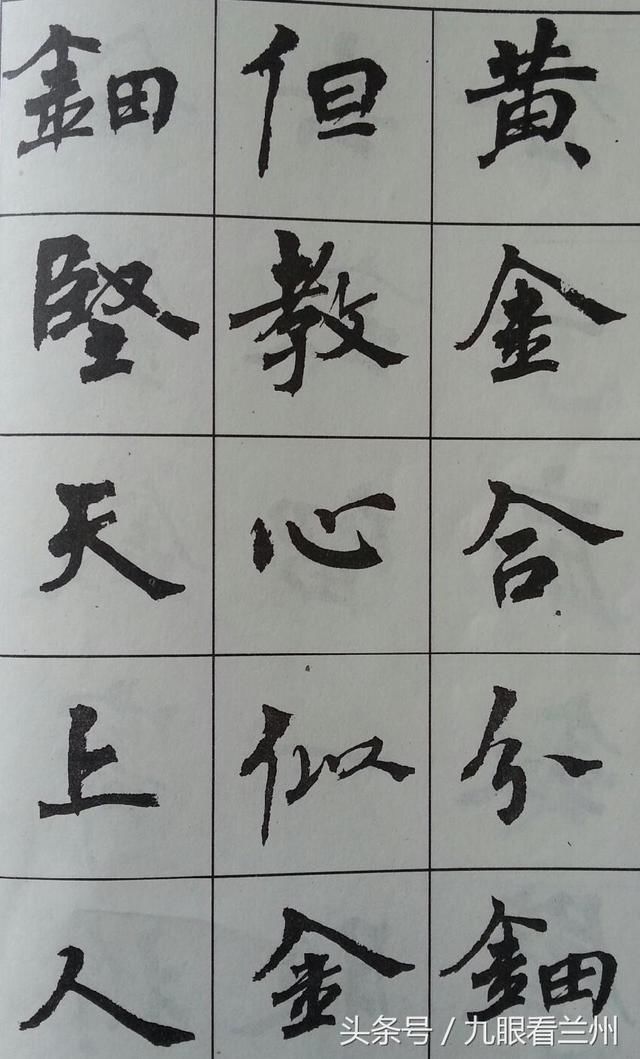 黄金合分鈿
但教心似金
鈿堅天上人
头条号 / 九眼看兰州